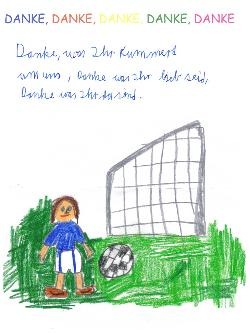 DANKE, DANKE, DANKE, DANKE, DANKE
Danke, was Ihr Kümmert
um uns, Danke was Ihr lieb seid,
Danke was Ihr da sind.